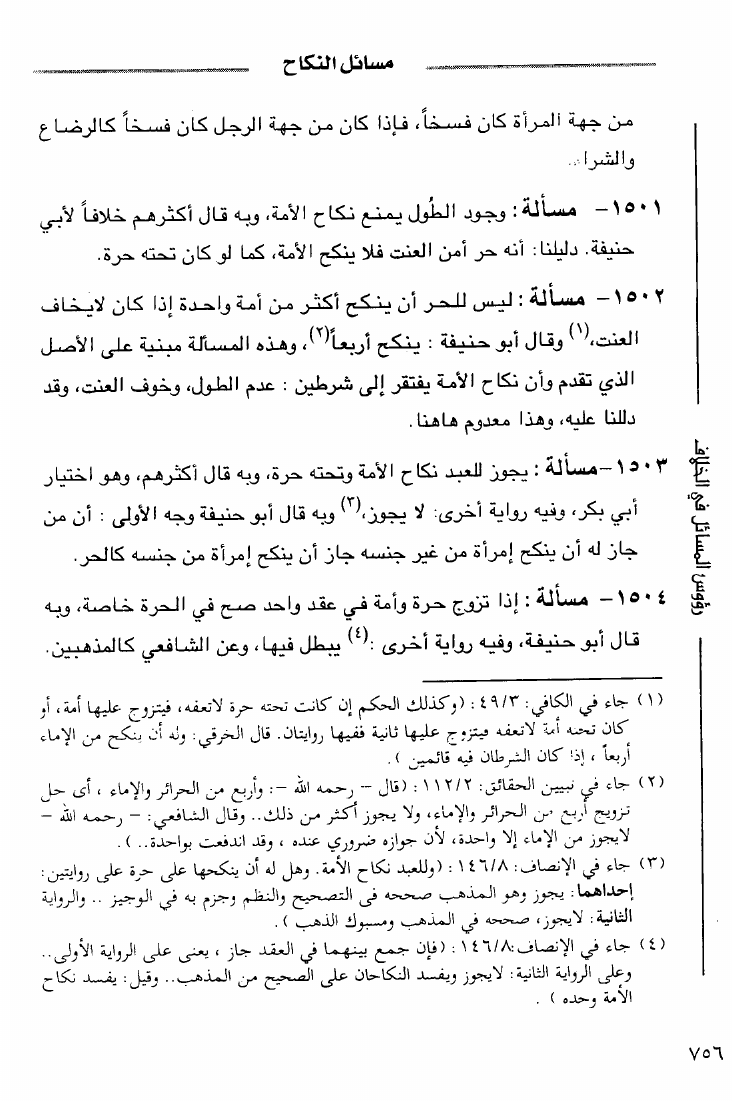 مسائل النكاح
من جهة المرأة كان فسخاً، فإذا كان من جهة الرجل كان فسخاً كالرضاع
والشراء.
١٥٠١- مسألة: وجود الطُول يمنع نكاح الأمة، وبه قال أكثرهم خلافاً لأبي
حنيفة. دليلنا: أنه حر أمن العنت فلا ينكح الأمة، كما لو كان تحته حرة.
١٥٠٢- مسألة: ليس للحر أن ينكح أكثر من أمة واحدة إذا كان لايخاف
العنت،(١) وقال أبو حنيفة: ينكح أربعاً(٢)، وهذه المسألة مبنية على الأصل
الذي تقدم وأن نكاح الأمة يفتقر إلى شرطين: عدم الطول، وخوف العنت، وقد
دللنا عليه، وهذا معدوم هاهنا.
١٥٠٣-مسألة: يجوز للعبد نكاح الأمة وتحته حرة، وبه قال أكثرهم، وهو اختيار
أبي بكر، وفيه رواية أخرى: لا يجوز،(٣) وبه قال أبو حنيفة وجه الأولى: أن من
جاز له أن ينكح إمرأة من غير جنسه جاز أن ينكح إمرأة من جنسه كالحر.
١٥٠٤- مسألة: إذا تزوج حرة وأمة في عقد واحد صح في الحرة خاصة، وبه
قال أبو حنيفة، وفيه رواية أخرى:(٤) يبطل فيها، وعن الشافعي كالمذهبين.
(١) جاء في الكافي: ٤٩/٣: (وكذلك الحكم إن كانت تحته حرة لاتعفه، فيتزوج عليها أمة، أو
كان تحته أمة لاتعفه فيتزوج عليها ثانية ففيها روايتان. قال الخرقي: وله أن ينكح من الإماء
أربعاً، إذا كان الشرطان فيه قائمين).
(٢) جاء في تبيين الحقائق: ١١٢/٢: (قال - رحمه الله -: وأربع من الحرائر والإماء، أى حل
تزويج أربع من الحرائر والإماء، ولا يجوز أكثر من ذلك.. وقال الشافعي: - رحمه الله -
لايجوز من الإماء إلا واحدة، لأن جوازه ضروري عنده، وقد اندفعت بواحدة..).
(٣) جاء في الإنصاف: ١٤٦/٨: (وللعبد نكاح الأمة. وهل له أن ينكحها على حرة على روايتين:
إحداهما: يجوز وهو المذهب صححه فى التصحيح والنظم وجزم به في الوجيز .. والرواية
الثانية: لايجوز، صححه في المذهب ومسبوك الذهب).
(٤) جاء في الإنصاف: ١٤٦/٨: (فإن جمع بينهما في العقد جاز، يعنى على الرواية الأولى..
وعلى الرواية الثانية: لايجوز ويفسد النكاحان على الصحيح من المذهب.. وقيل: يفسد نكاح
الأمة وحده).
رؤوس المسائل في الخلاف
٧٥٦